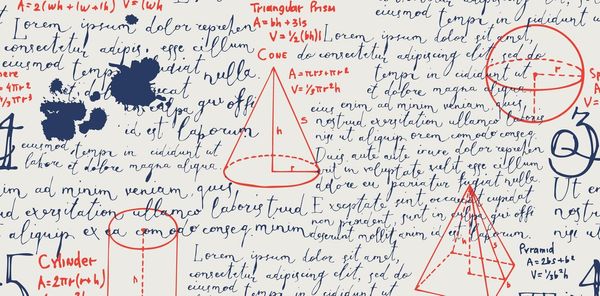 A=2(wh+lw+lh) V=lwh
Triangular Prism
A=bh+3ls
V=1/2(bh)l
Lorem ipsum dolor reprehen
consectetur adipis. esse cillum
eiusmod tempor
fugiat nulla
culpa qui offi
id est laborum
eiusmod tempor in cididunt ut
labore et dolore magna aliqua.
Cone
A=πrs+πr²
V=1/3πr²h
s
h
r
eiusmod tempor in cididunt ut
Lorem ipsum dolor sit amet,
do consectetur adipiscing elit, sed do
tempor in cididunt ut
et dolore magna aliqua
enim ad minim veniam, quis
nostrud exersitation ullamco laboris
nisi ut aliquip ex ea commodo conseq.
Duis aute irure dolor reprehen
in voluptate velit esse cillum
dolore eu pariatur fugiat nulla
Excepteur sint, occaecat cupidat
non proident, sunt in culpa qui offi
deserunt mollit anim id est laborum.
r
Sp
A=
V=
ere
=4πr²
4/3πr³
4
3
im ad minim veniam, quis
exersitation ullamco laboris
aliquip ex ea commodo conseq. minim
Cylinder
A=2πr(r+h)
r
h
Lorem ipsum dolor sit amet,
consectetur adipiscing elit, sed do
eiusmod tempor in cididunt ut
labore et dolore magna aliqua
h
s
b
Pyramid
A=2bs+b²
V=1/3b²h
Ut en
nostru
nisi ut
5